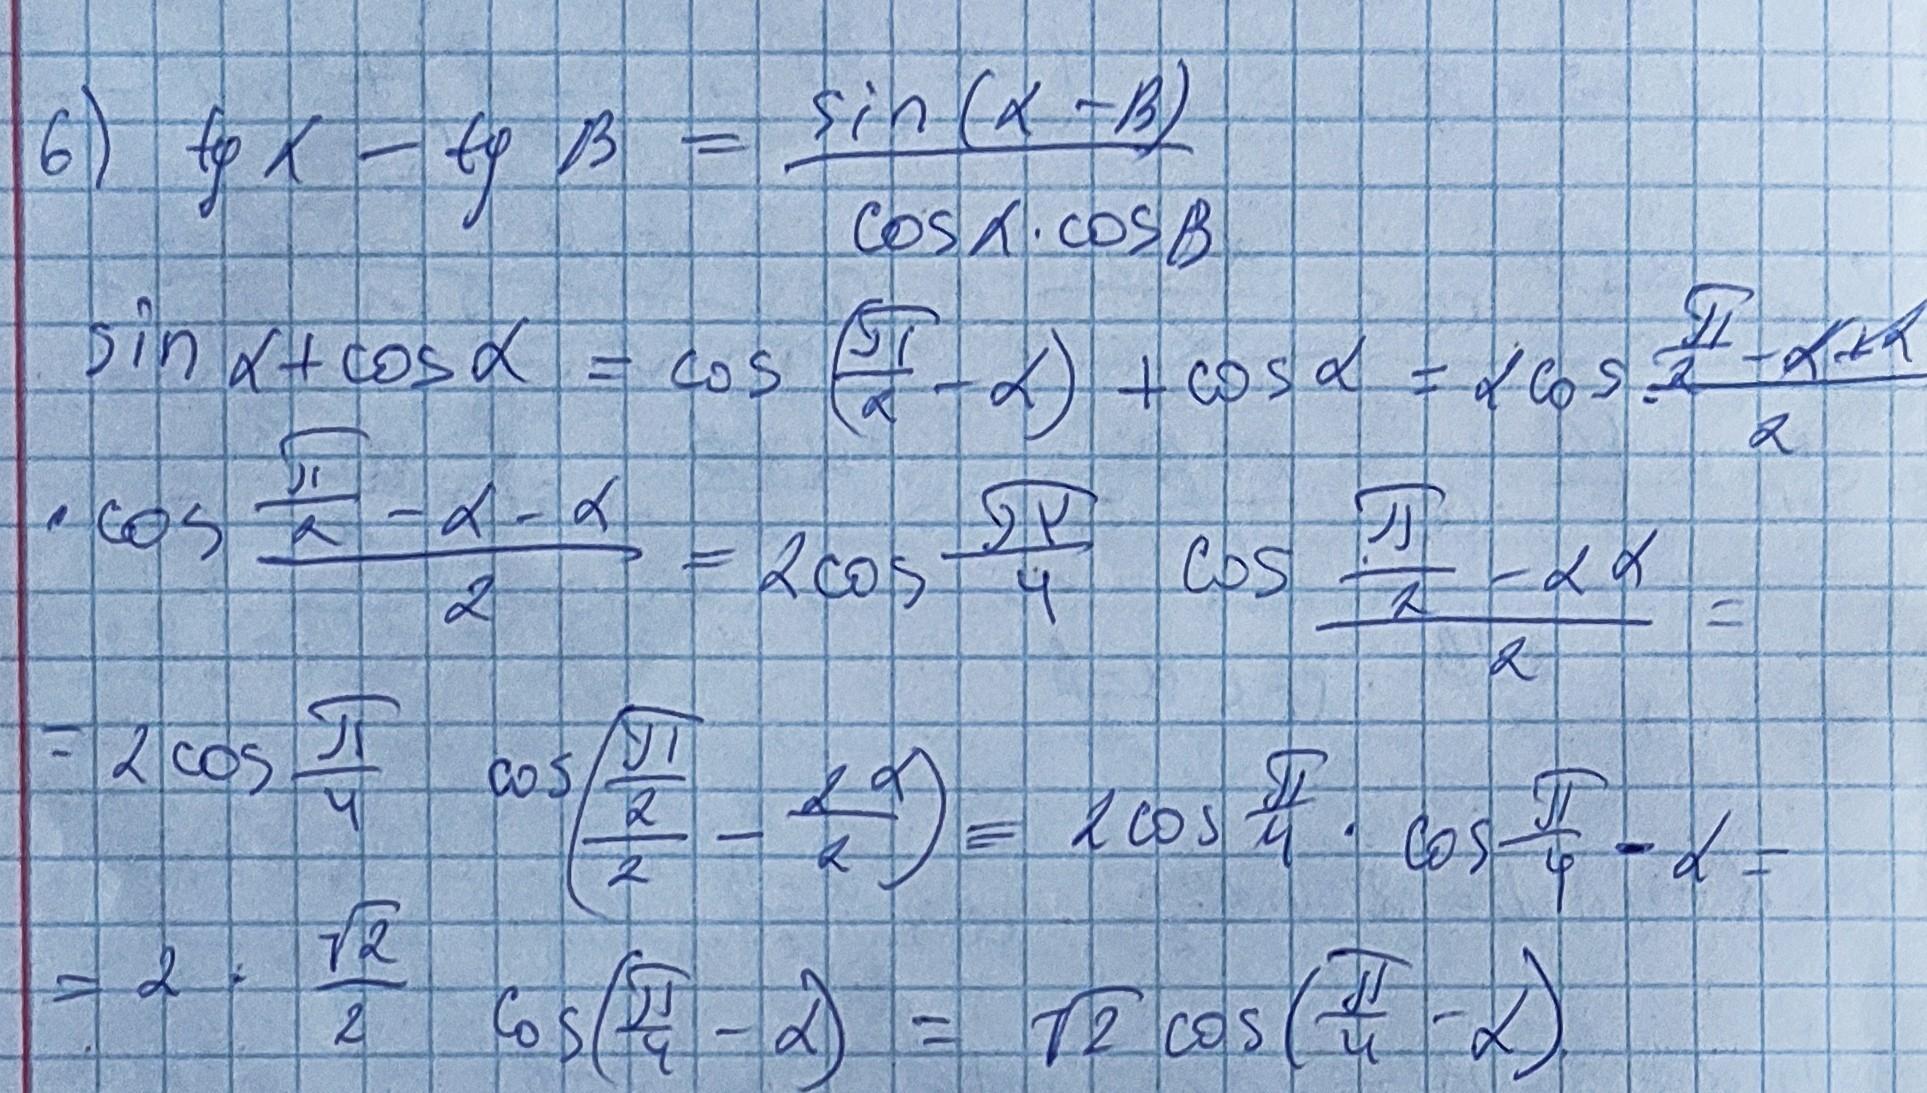 6) tg α - tg β = sin(α - β) / cos α · cos β
sin α + cos α = cos (π/2 - α) + cos α = 2 cos (π/2 - α + α)/2
· cos (π/2 - α - α)/2 = 2 cos π/4 cos (π/2 - 2α)/2 =
= 2 cos π/4 cos ((π/2)/2 - 2α/2) = 2 cos π/4 · cos π/4 - α =
= 2 · √2/2 cos (π/4 - α) = √2 cos (π/4 - α)